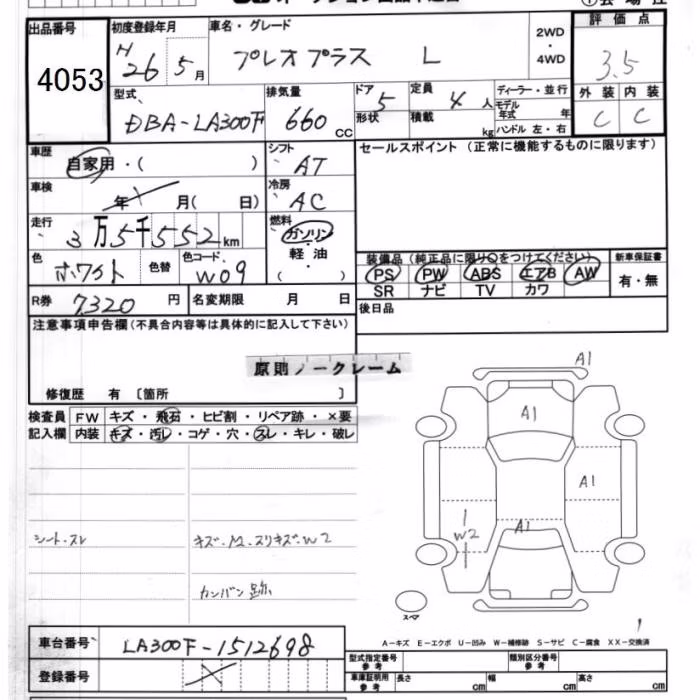 出品番号
4053
初度登録年月
H
26 5月
車名・グレード
プレオプラス L
2WD
・
4WD
評価点
3.5
外装 内装
C C
型式
DBA-LA300F
排気量
660 CC
ドア 5
形状
定員 4 人
積載 kg
ディーラー・並行
モデル
年式 年
ハンドル 左・右
車歴
自家用・( )
シフト
AT
セールスポイント (正常に機能するものに限ります)
車検
年 月( 日)
冷房
AC
走行
3万5千552km
燃料
ガソリン
・
軽油
( )
色
ホワイト
色替
色コード
W09
装備品 (純正品に限り○をつけてください)
PS PW ABS エアB AW
SR ナビ TV カワ
新車保証書
有・無
R券 7320 円
名変期限 月 日
後日品
注意事項申告欄 (不具合内容等は具体的に記入して下さい)
原則ノークレーム
修復歴 有 〔箇所 〕
検査員 FW キズ・飛石・ヒビ割・リペア跡・×要
記入欄 内装 キズ・汚レ・コゲ・穴・スレ・キレ・破レ
シート・スレ
キズ・凹・スリキズ・W2
カンバン跡
A1
A1
A1
A1
W2
スペア
A-キズ E-エクボ U-凹み W-補修跡 S-サビ C-腐食 XX-交換済
車台番号 LA300F-1512698
登録番号
型式指定番号
参考
類別区分番号
参考
車庫証明用
参考
長さ cm
幅 cm
高さ cm